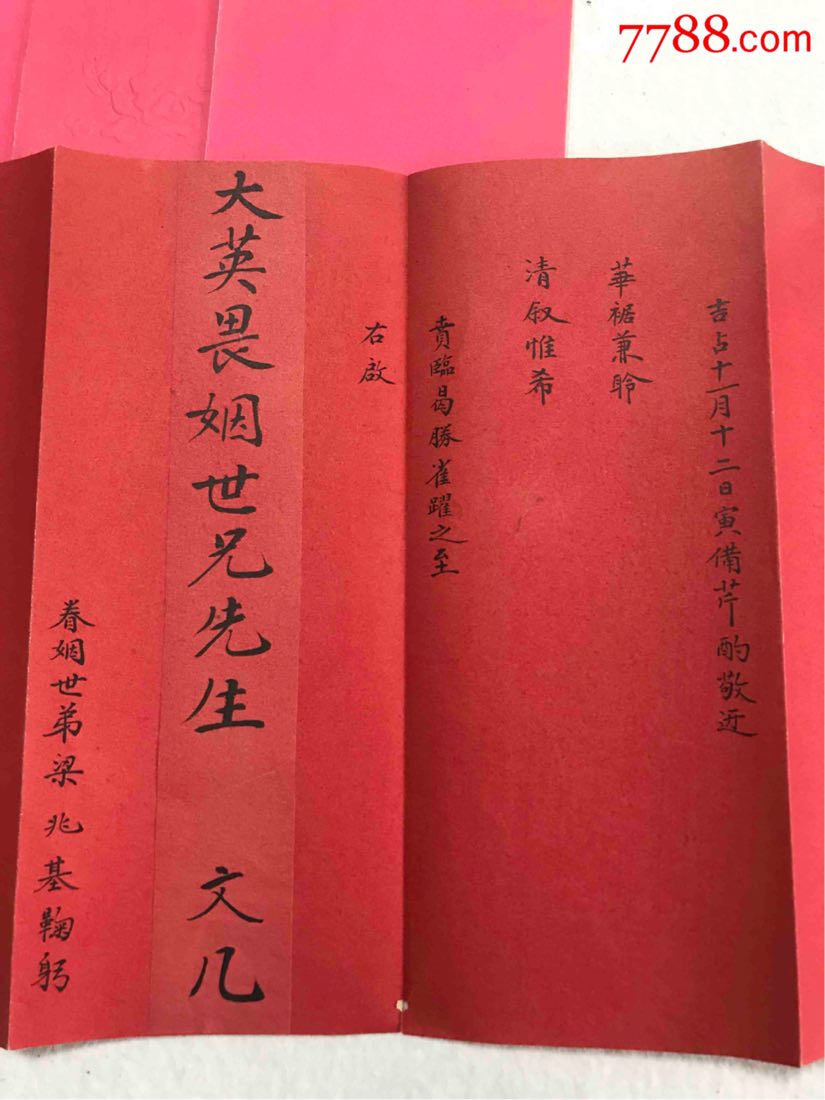 7788.com
吉占十一月十二日寅備芹酌敬迓
華裾兼聆
清叙惟希
賁臨曷勝雀躍之至
右啟
大英畏姻世兄先生 文几
眷姻世弟梁兆基鞠躬